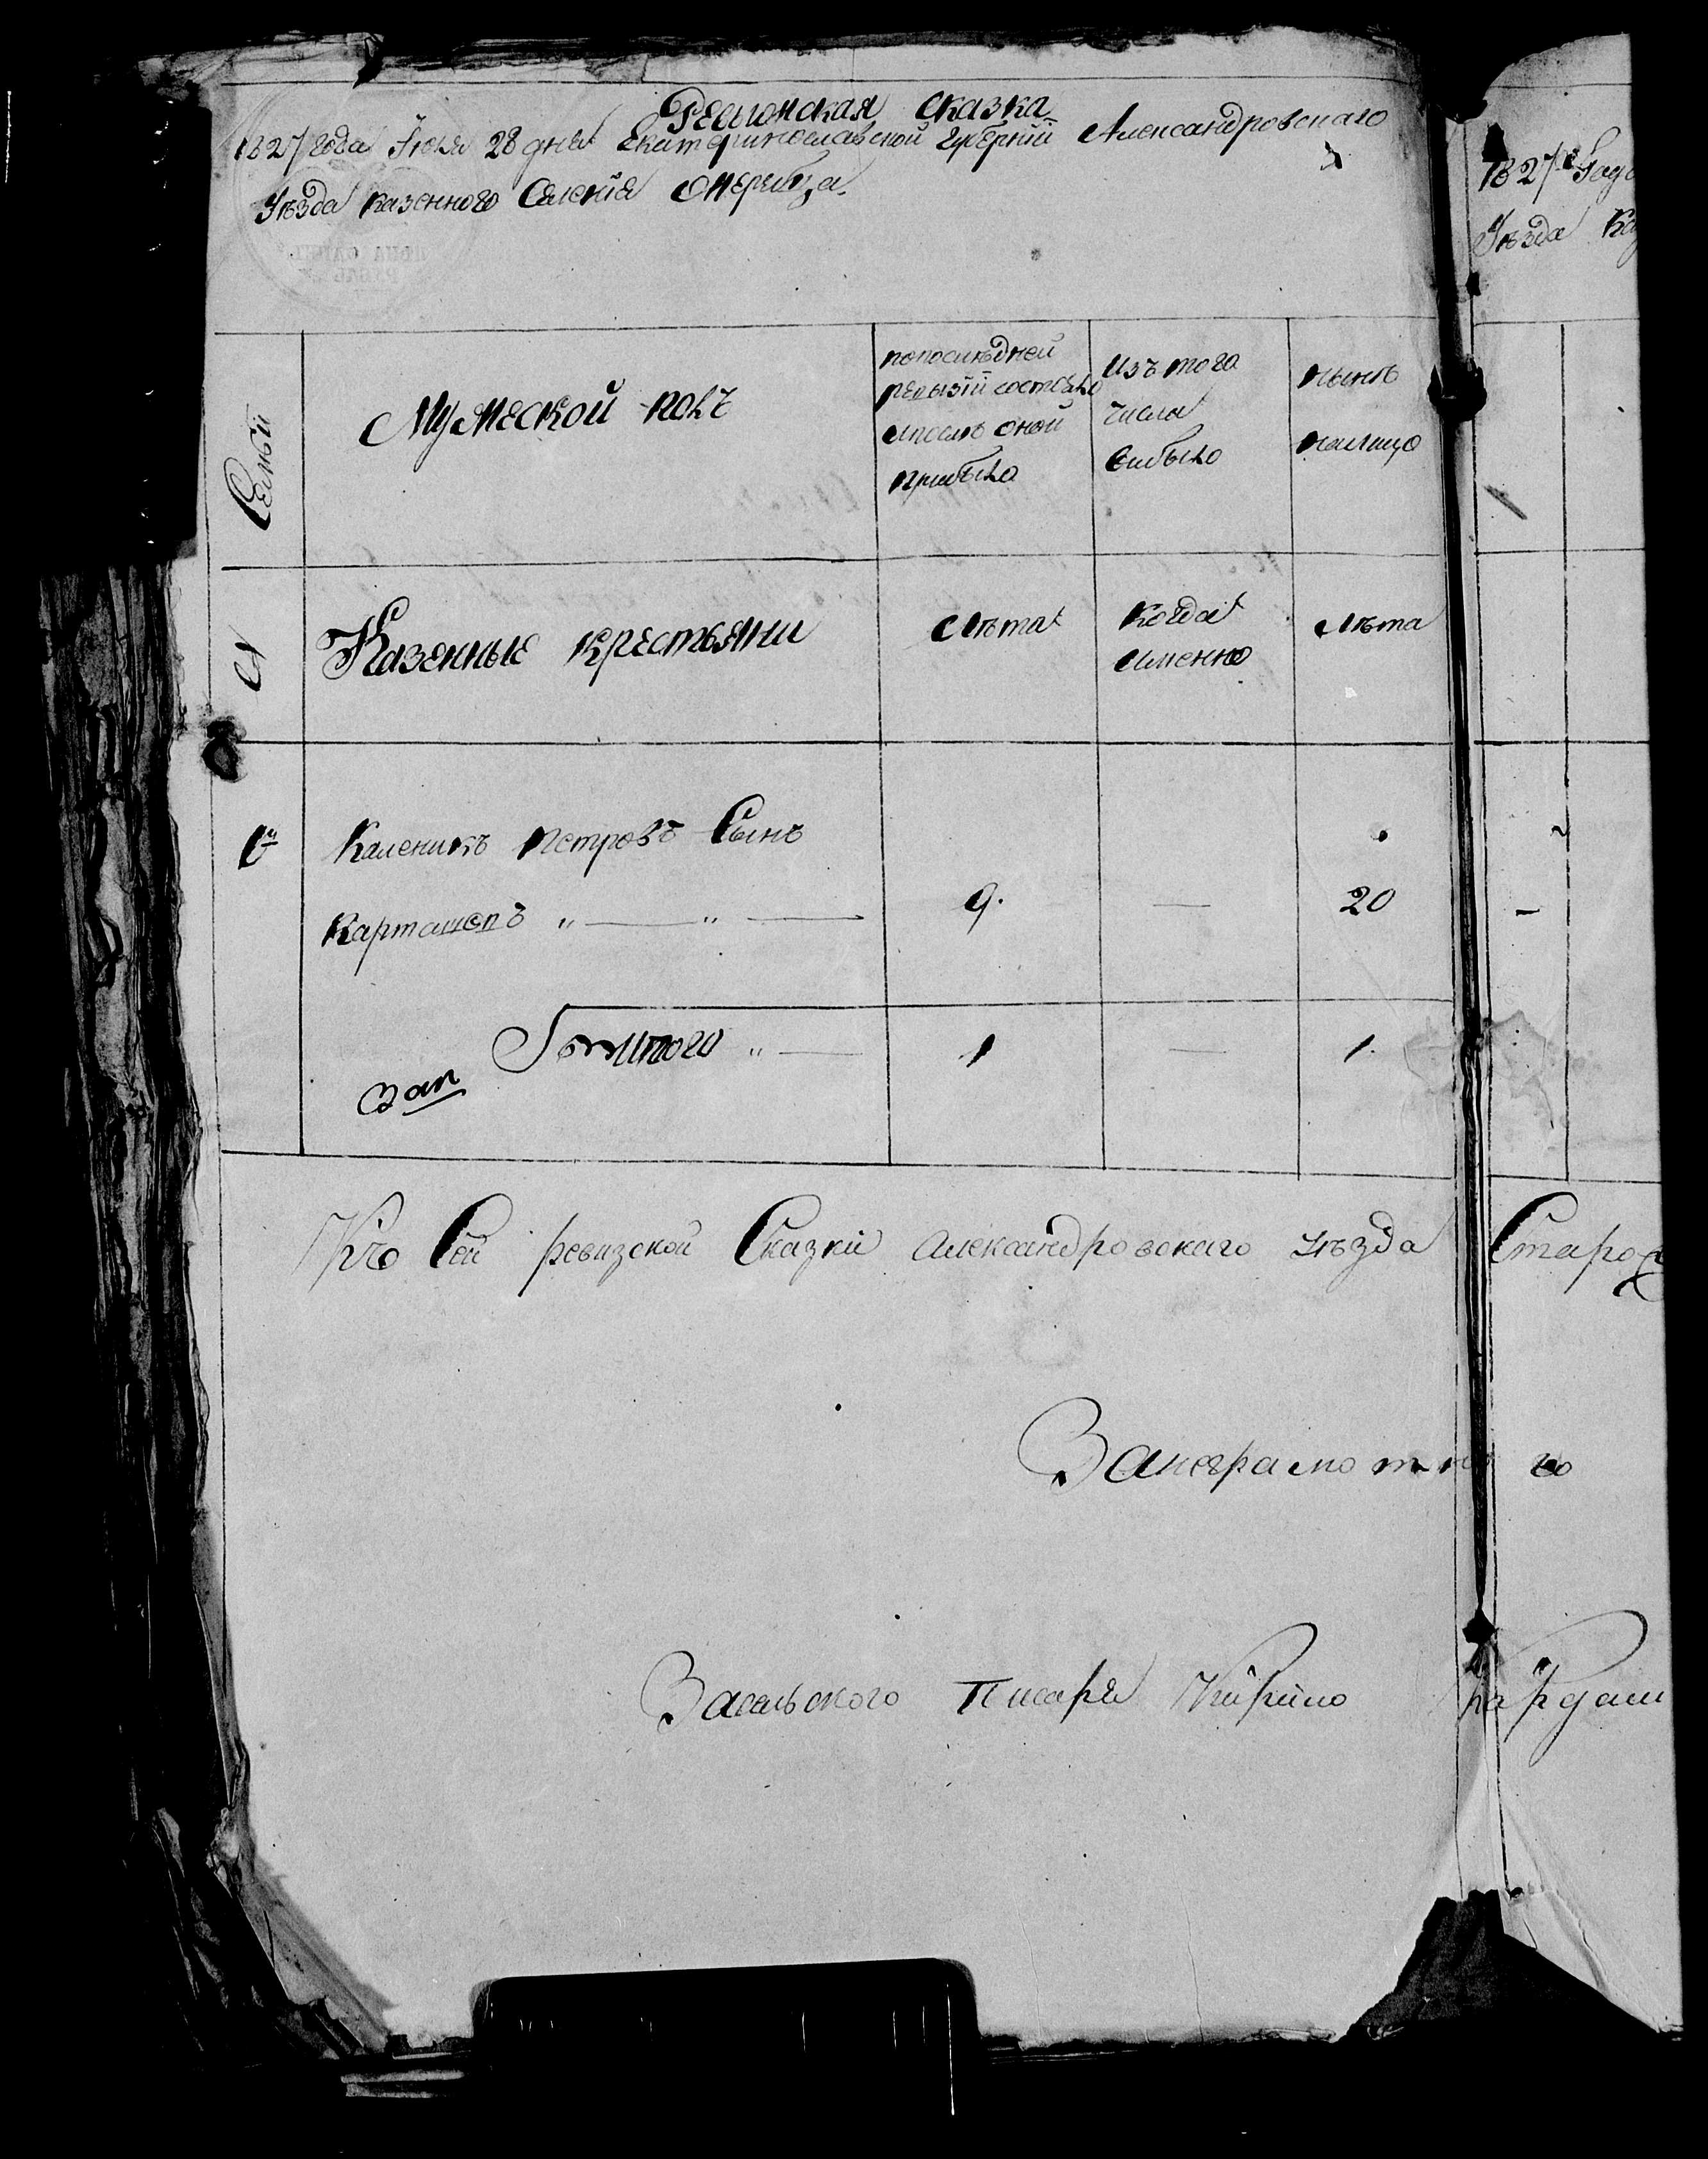 Ревизская сказка
1827 года Июля 28 дня Екатеринославской губернии Александровского
Уѣзда казенного Селения Жеребца
1827 Года
Уѣзда Каз
Семьи
Мужеской полъ
по последней
ревизии состояло
и после оной
прибыло
Изъ того
числа
выбыло
нынѣ
налицо
№
Казенные крестьяни
Лѣта
когда
именно
Лѣта
Каленикъ Петровъ Сынъ
Карташевъ " — " —
9.
—
20
Итого " —
1
—
1.
Къ Сей ревизской Сказки Александровскаго уѣзда Старо
За неграмотного
За сельского Писаря Кирило